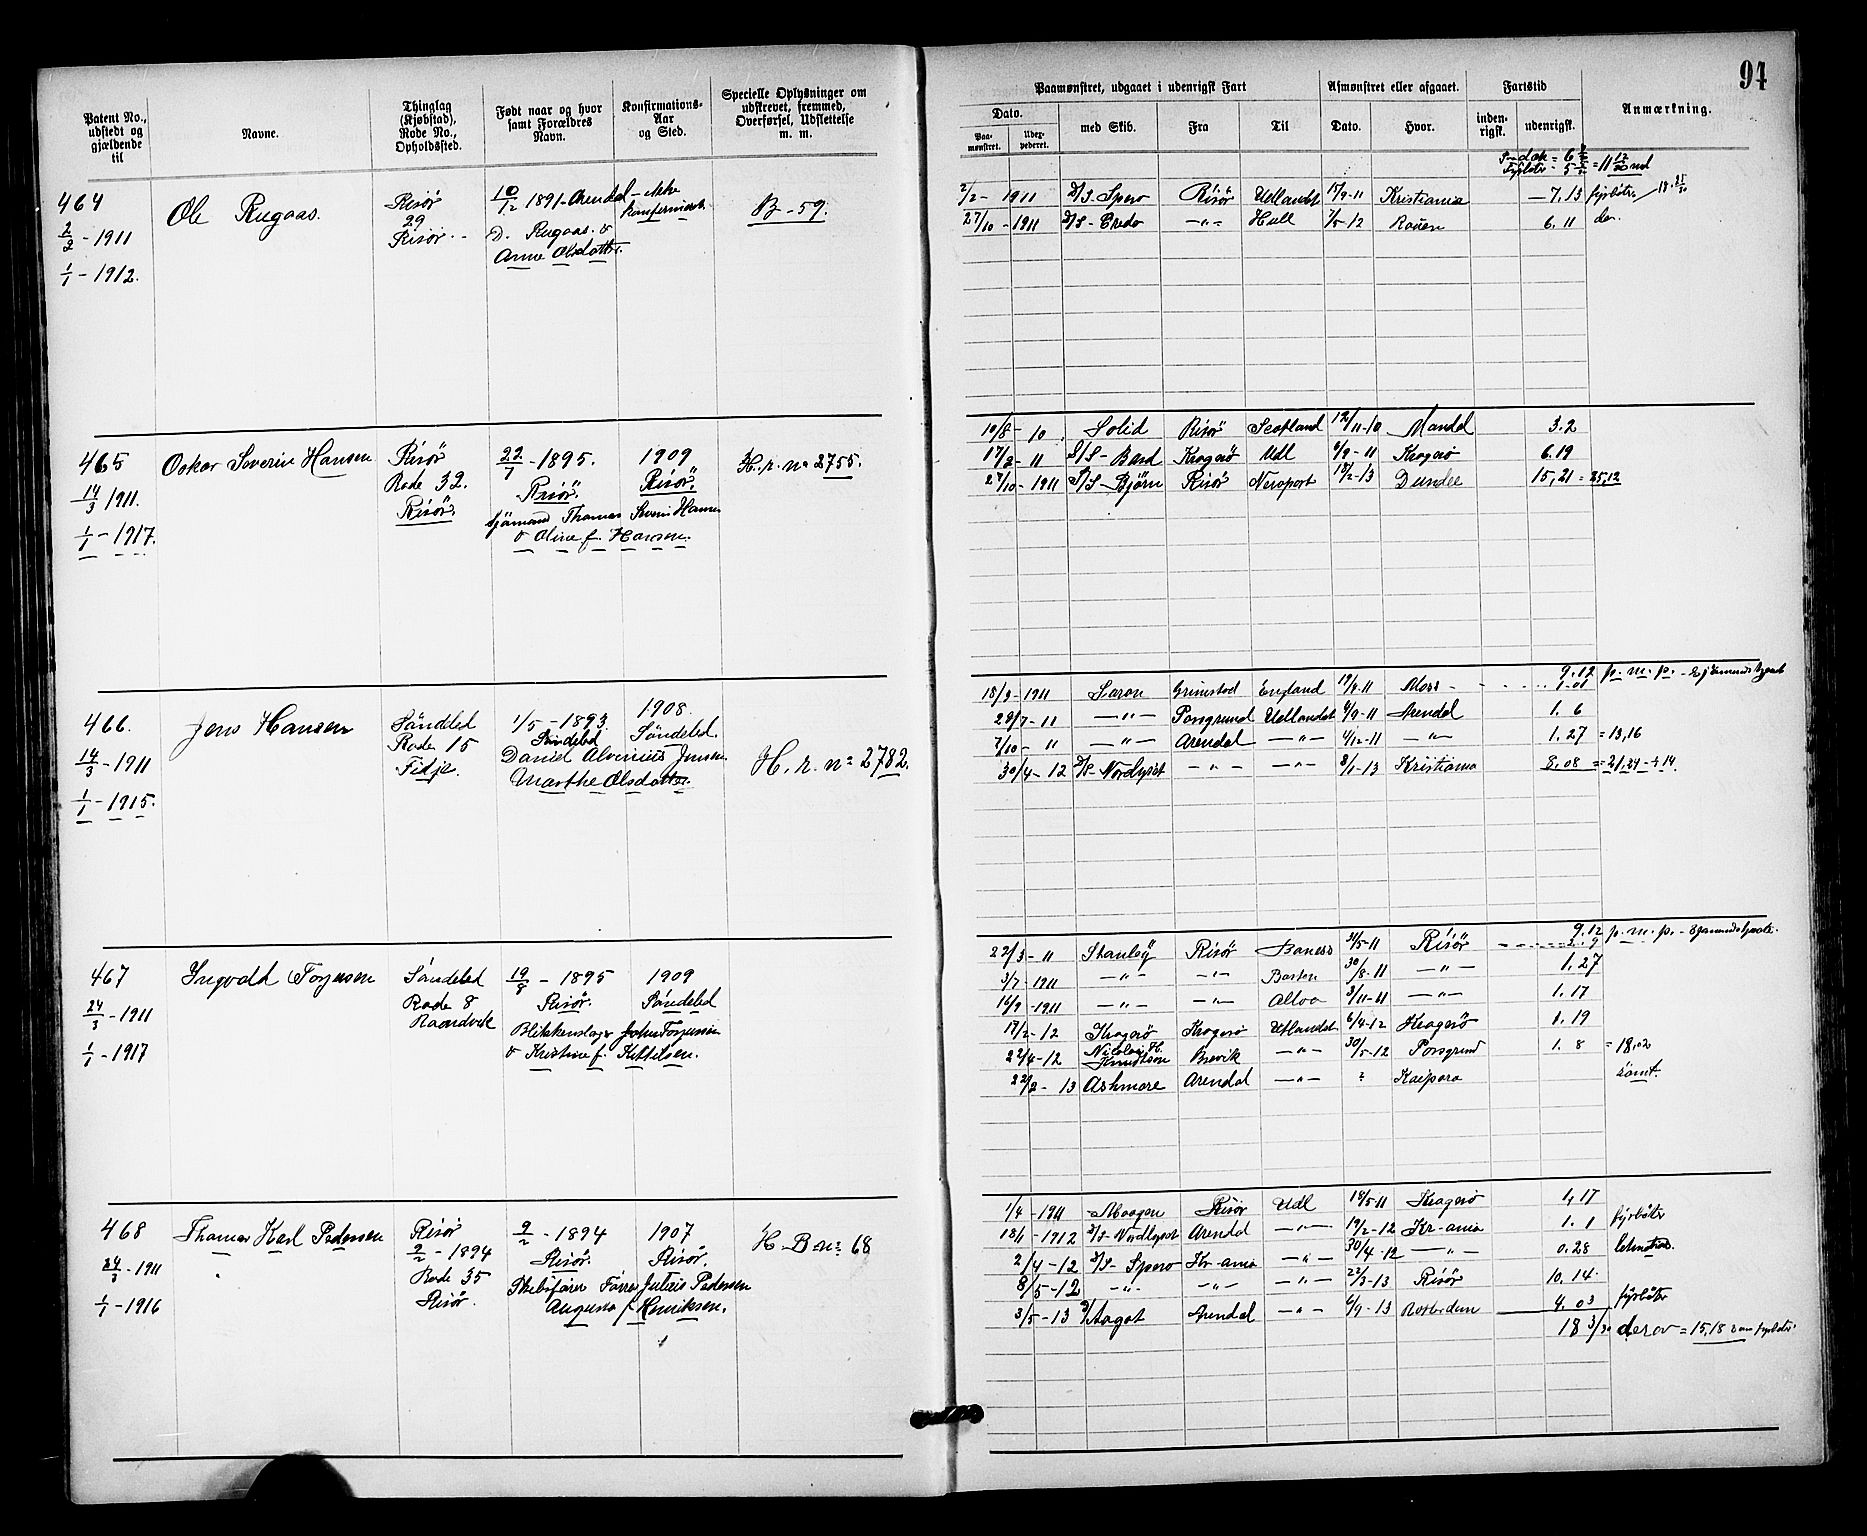 94
Patent No., udstedt og gjældende til
Navne.
Thinglag (Kjøbstad), Rode No., Opholdssted.
Født naar og hvor samt Forældres Navn.
Konfirmations-Aar og Sted.
Specielle Oplysninger om udskrevet, fremmed, Overførsel, Udslettelse m. m.
Paamønstret, udgaaet i udenrigsk Fart
Dato.
Paa-mønstret.
Udex-pederet.
med Skib.
Fra
Til
Afmønstret eller afgaaet.
Dato.
Hvor.
Fartstid
inden-rigsk.
udenrigsk.
Anmærkning.
464
2/2 - 1911
1/1 - 1912.
Ole Rugaas.
Risör
29
Risör.
10/12 1891 - Arendal
D. Rugaas. &
Anne Olsdatter.
ikke
konfermeret.
B - 59.
2/2 - 1911 D/S. Spero Risör Udlandet 15/9-11 Kristiania 7.13 fyrböter
27/10 - 1911 D/S - Credo -"- Hull 7/5-12 Rouen 6.11 do.
465
14/3 1911.
1/1 - 1917.
Oskar Severin Hansen
Risör
Rode 32.
Risör.
22/7 - 1895.
Risör.
Sjömand Thomas Severin Hansen
& Oline f. Hansen.
1909
Risör.
H. r. no 2755.
10/8 - 10. Solid Risör Scotland 12/11-10 Mandal 3.2
17/3 - 11 S/S - Bard Kragerö Udl 6/9 - 11 Kragerö 6.19
27/10 - 1911 S/S - Björn Risör Neroport 18/2-13 Dundee 15,21 = 25,12
466.
14/3 - 1911
1/1 - 1915.
Jens Hansen
Söndeled
Rode 15
Fidje.
1/5 - 1893.
Söndeled
Daniel Alvinius Jensen
Marthe Olsdatter.
1908.
Söndeled.
H. r. no 2782.
9.12 p. m. p.
18/3 - 1911 Saron Grimstad England 19/4-11 Moss 1.01
28/7 - 11 -"- Porsgrund Udlandet 4/9-11 Arendal 1. 6
7/10 - 11 -"- Arendal -"- 4/12-11 -"- 1.27 = 13,16
30/4 - 12 D/S - Nordlyset -"- -"- 8/1-13 Kristiania 8.08 = 21.24
467
24/3 - 1911
1/1 - 1917
Ingvald Torjusen
Söndeled
Rode 8
Raandvik
19/8 - 1895
Risör.
Blikkenslager John Torjusen
& Kristine f. Kittilsen.
1909
Söndeled
9.12 p. m. p.
22/3 - 11 Stanley Risör Boness 31/5-11 Risör
3/7 - 1911 -"- -"- Boston 30/8-11 -"- 1.27
16/9 - 1911 -"- -"- Alloa 3/11-11 -"- 1.17
17/2 - 12 Kragerö Kragerö Udlandet 6/4-12 Kragerö 1.19
22/4-12 Nicolay H. Knudtson Brevik -"- 30/5-12 Porsgrund 1. 8 = 18,02
22/2 - 13 Ashmore Arendal -"- ? Kaipara römt.
468
24/3 - 1911
1/1 - 1916
Thomas Karl Pedersen
Risör
9/2 - 1894
Rode 35
Risör.
9/2 - 1894
Risör.
Skibsförer Julius Pedersen
Augusta f. Henriksen.
1907
Risör.
H - B no 68
1/4 - 1911 Risör Udl 18/5-11 Kragerö 1,17
18/1 - 1912 D/S - Nordlyset Arendal -"- 19/2-12 Kr-ania 1. 1 fyrböter
2/4 - 12 D/S - Spero Kr-ania -"- 30/4-12 -"- 0.28
8/5 - 12 -"- -"- -"- 22/3-13 Risör 10.14.
3/5 - 13 D/S Aagot Arendal -"- 6/9 - 13 Rotterdam 4.03 fyrböter
18 3/30 derav = 15,18 som fyrböter